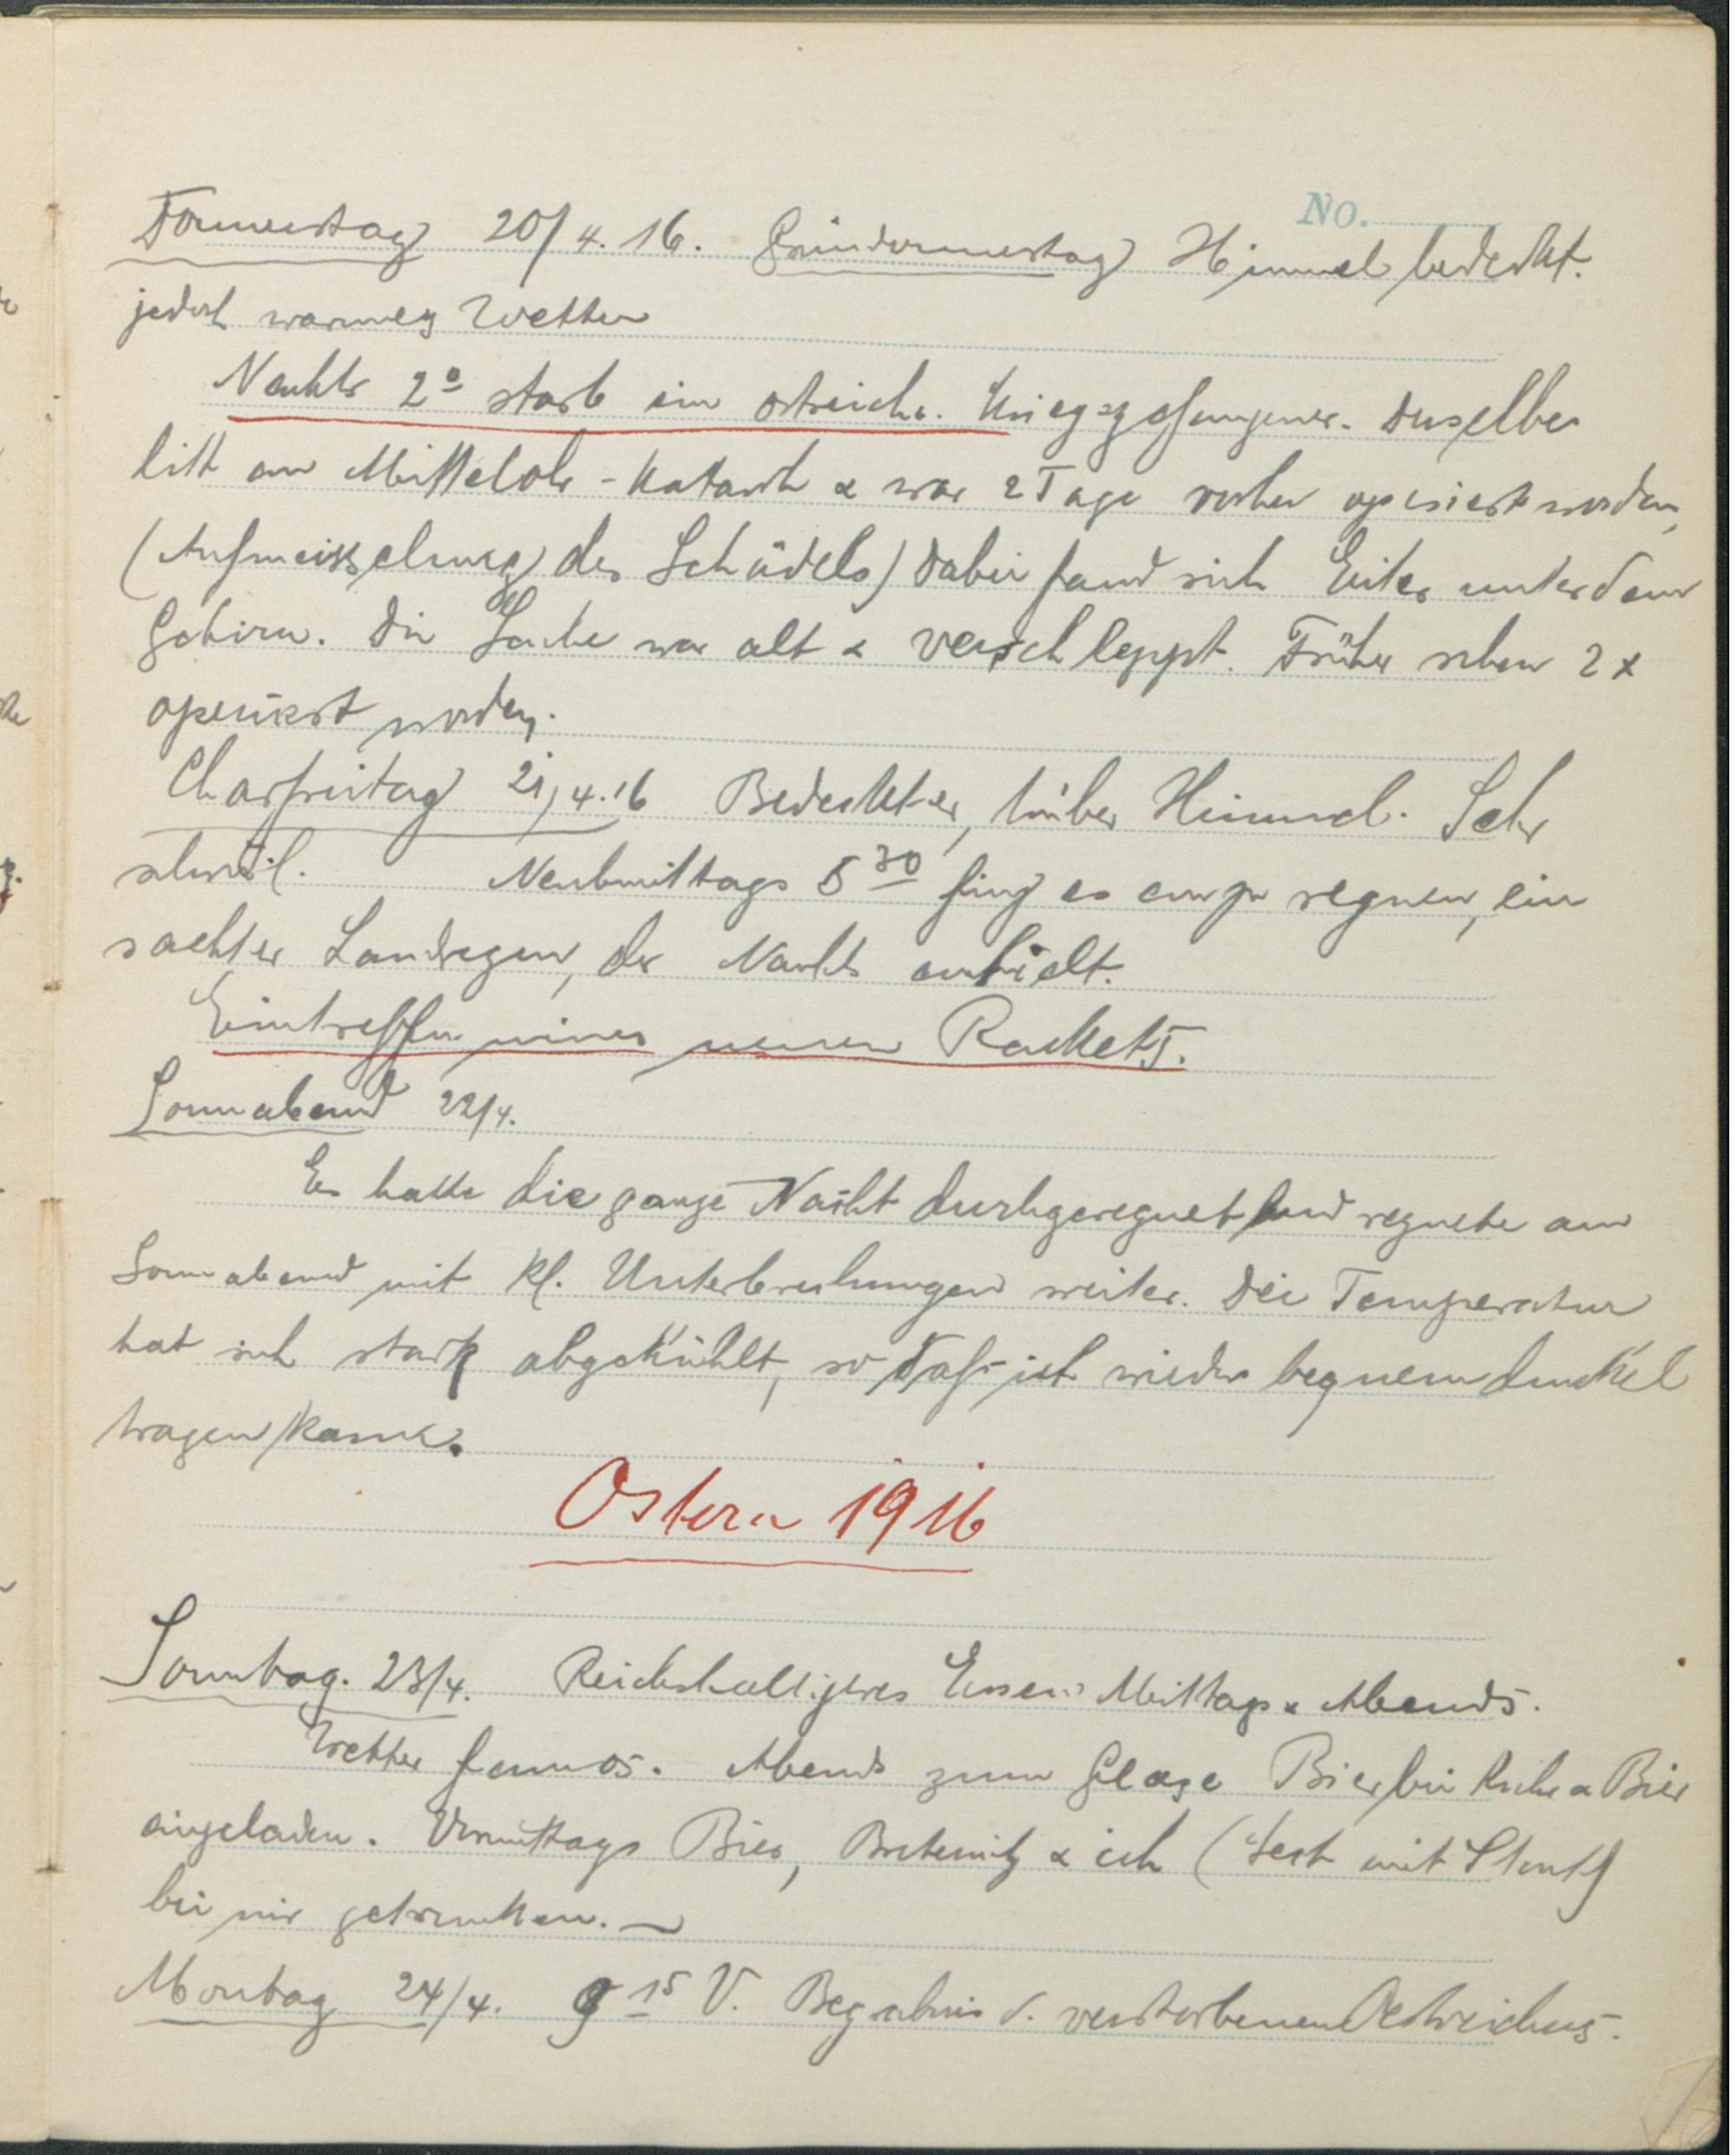 No.
Donnerstag 20/4.16. Gründonnerstag Himmel bedeckt.
jedoch warmes Wetter
Nachts 2º starb ein östreich. Kriegsgefangener. Derselbe
litt an Mittelohr-Katarrh & war 2 Tage vorher operiert worden,
(Aufmeisselung des Schädels) dabei fand sich Eiter unter dem
Gehirn. Die Sache war alt & verschleppt. Früher schon 2x
operiert worden.
Charfreitag 21/4.16 Bedeckter, trüber Himmel. Sehr
schwül. Nachmittags 5 30 fing es an zu regnen, ein
sachter Landregen, der Nachts anhielt.
Eintreffen meines neuen Rackets.
Sonnabend 22/4.
Es hatte die ganze Nacht durchgeregnet und regnete am
Sonnabend mit kl. Unterbrechungen weiter. Die Temperatur
hat sich stark abgekühlt, so daß ich wieder bequem dunkel
tragen kann.
Ostern 1916
Sonntag. 23/4. Reichhaltigeres Essen Mittags & Abends.
Wetter famos. Abends zum Glase Bier bei & Bier
eingeladen. Vormittags Bier, & ich (Sekt mit
bei mir getrunken. —
Montag 24/4. 9 15 V. Begräbnis d. verstorbenen Oestreichers.